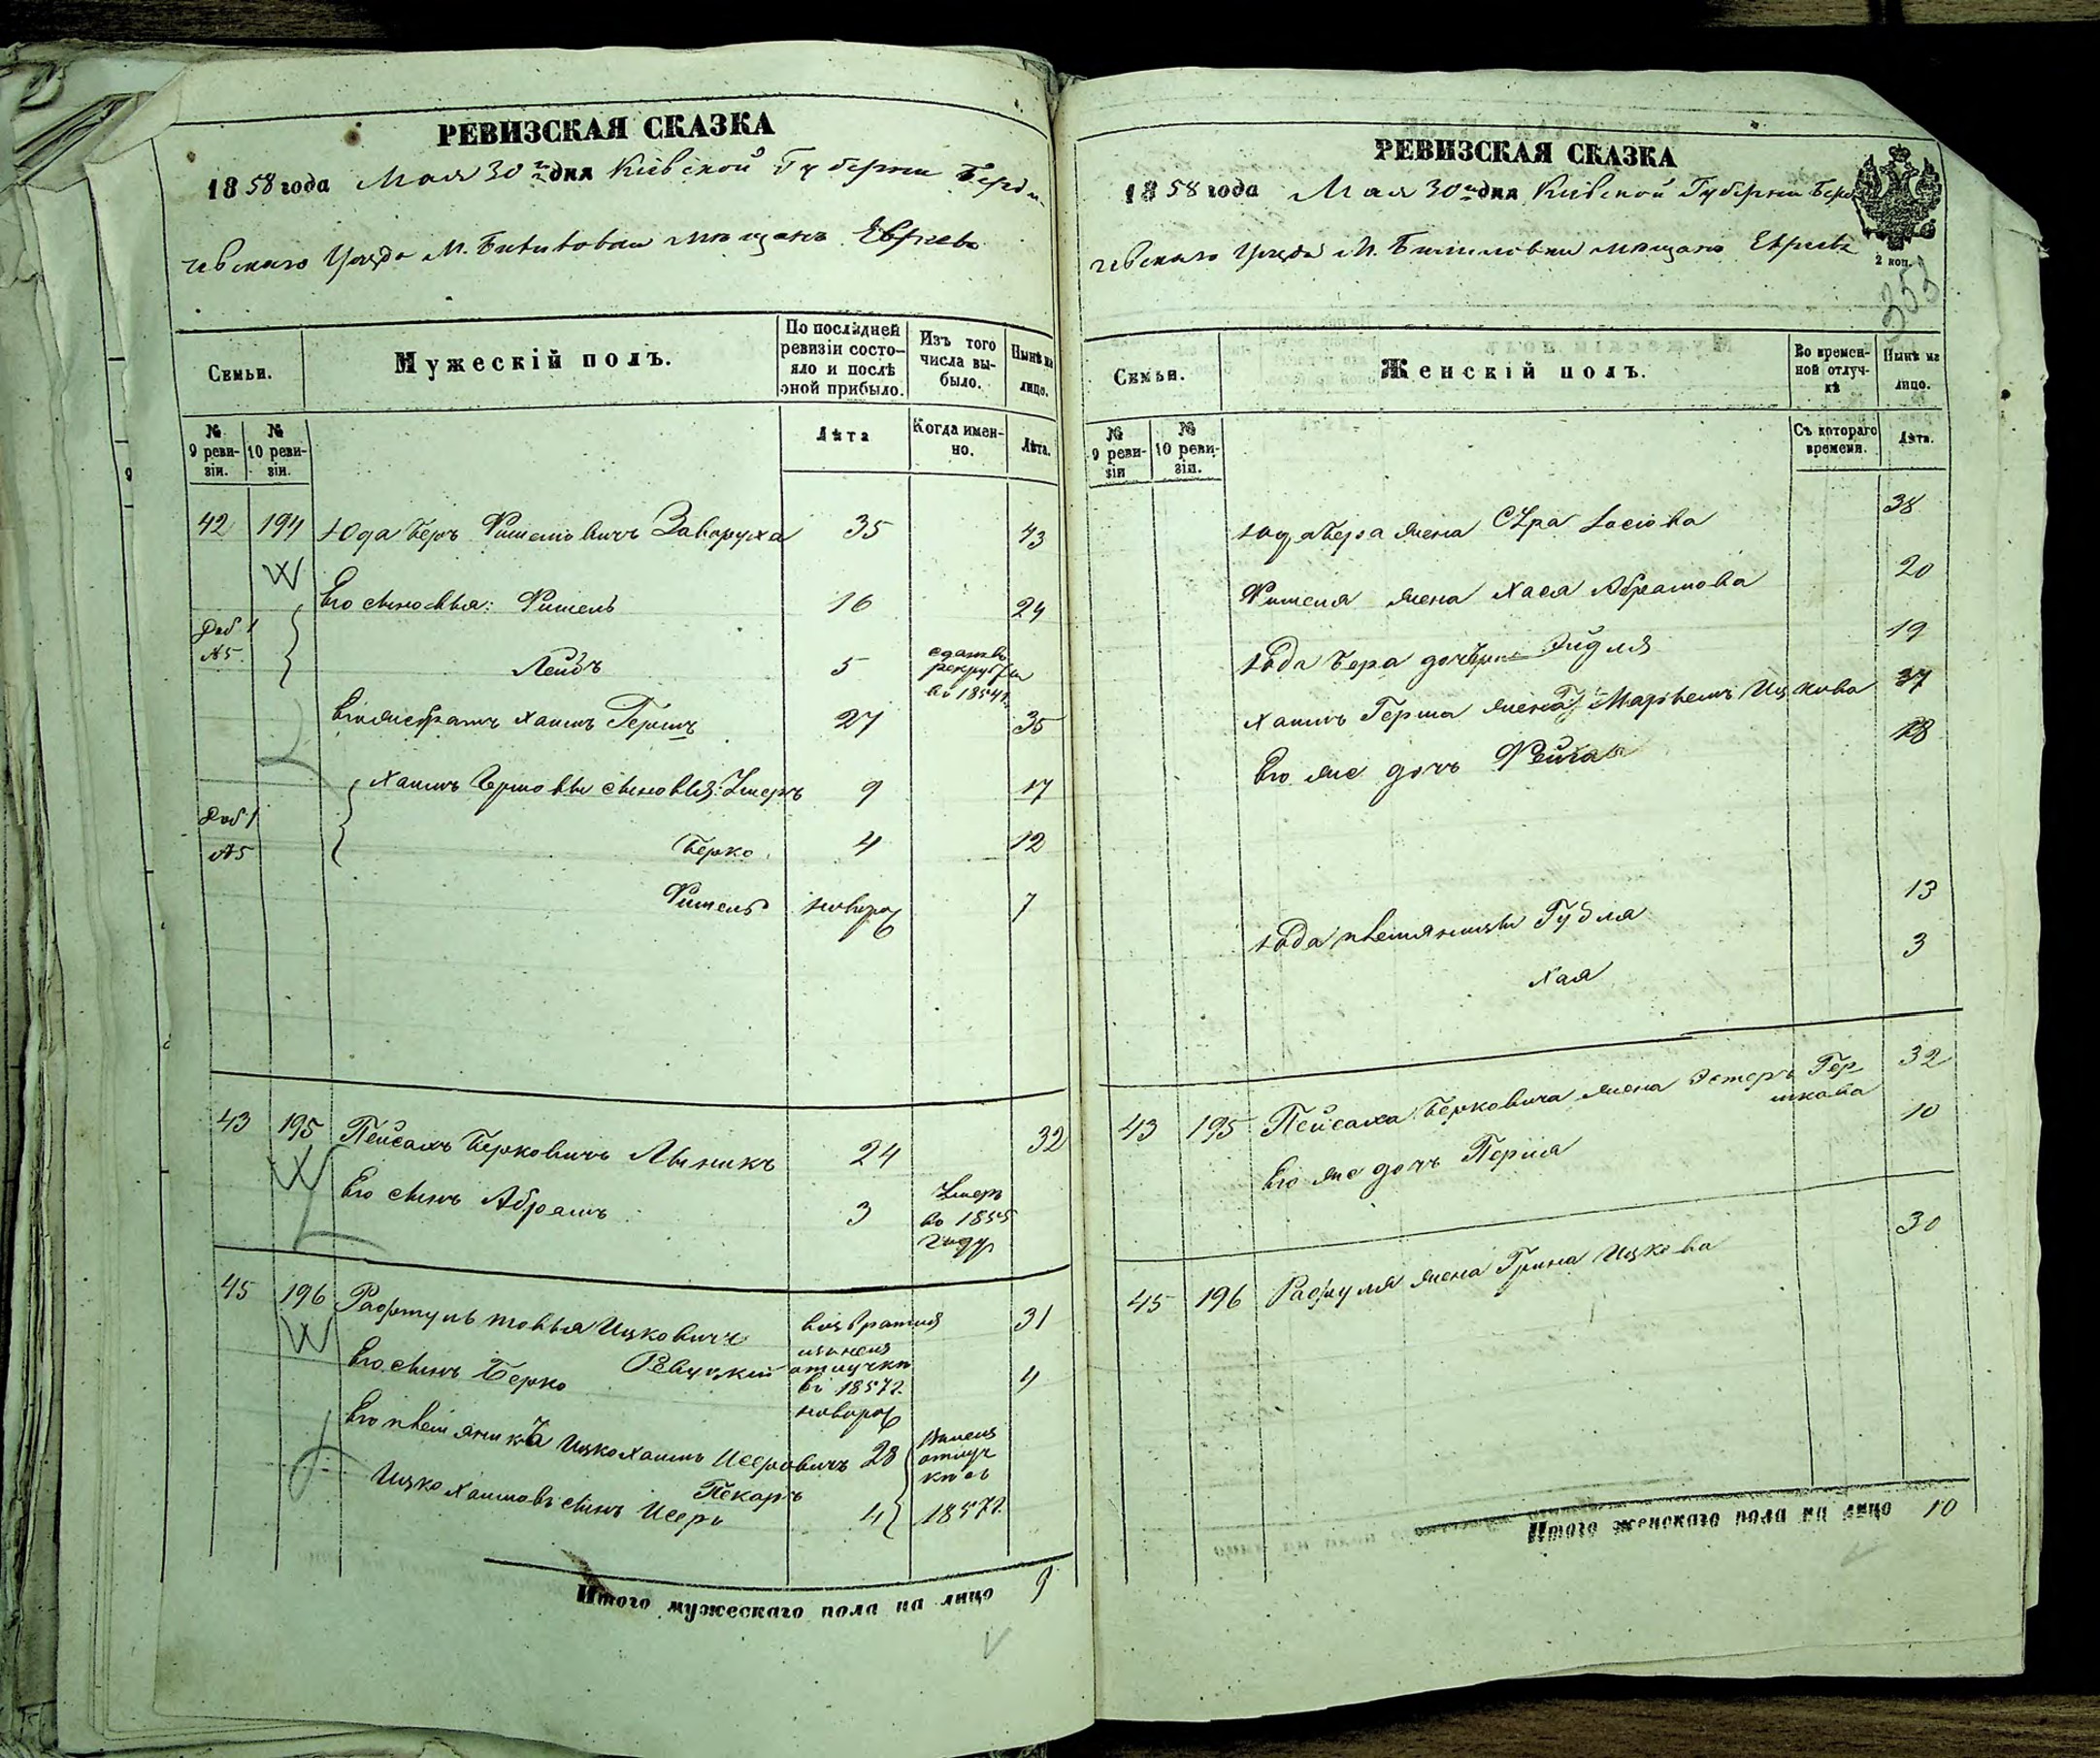 РЕВИЗСКАЯ СКАЗКА
1858 года Мая 30 дня Кіевской Губерніи Берди
чевскаго Уѣзда М. Бѣлиловки мѣщанъ Евреевъ
Семьи.
Мужескій полъ.
По послѣдней ревизіи состояло и послѣ оной прибыло.
Изъ того числа выбыло.
Нынѣ на лицо.
№ 9 ревизіи.
№ 10 ревизіи.
Лѣта
Когда именно.
Лѣта.
42 194 Юда Беръ Фишелевичъ Заваруха 35 43
Его сыновья: Фишель 16 24
Доб. 1
№ 5
Лейбъ 5 сданъ въ рекруты въ 1854 г.
Его же братъ Хаимъ Гершъ 27 35
Хаимъ Гершовы сыновья: Умеръ 9 17
Доб. 1
№ 5
Берко 4 12
Фишель новорож 7
43 195 Пейсахъ Берковичъ Лысикъ 24 32
Его сынъ Абрамъ 3 Умеръ въ 1855 году
45 196 Рафтулъ Товья Ицковичъ возвратил 31
Ревуцкій отлучки въ 1857 г.
Его сынъ Берко новорож 4
Его племяника Ицко Хаимъ Исеровичъ 28 отлучкѣ съ
Пекаръ
Ицко Хаимовъ сынъ Исеръ 4 1857 г.
Итого мужескаго пола на лицо 9
РЕВИЗСКАЯ СКАЗКА
1858 года Мая 30 дня Кіевской Губерніи Берд
чевскаго Уѣзда М. Бѣлиловки мѣщанъ Евреевъ
2 коп.
353
Семьи.
Женскій полъ.
Во временной отлучкѣ
Нынѣ на лицо.
№ 9 ревизіи
№ 10 ревизіи.
Съ котораго времени.
Лѣта.
Юда Бера жена Сура Іосіова 38
Фишеля жена Хася Абрамова 20
Юда Бера дочь Эйдля 19
Хаимъ Герша жена Маріемъ Ицкова 37
Его же дочь Фейга 18
Юда племяницы Гудля 13
Хая 3
43 195 Пейсаха Берковича жена Эстеръ Гершкова 32
Его же дочь Перля 10
45 196 Рафуля жена Грина Ицкова 30
Итого женскаго пола на лицо 10